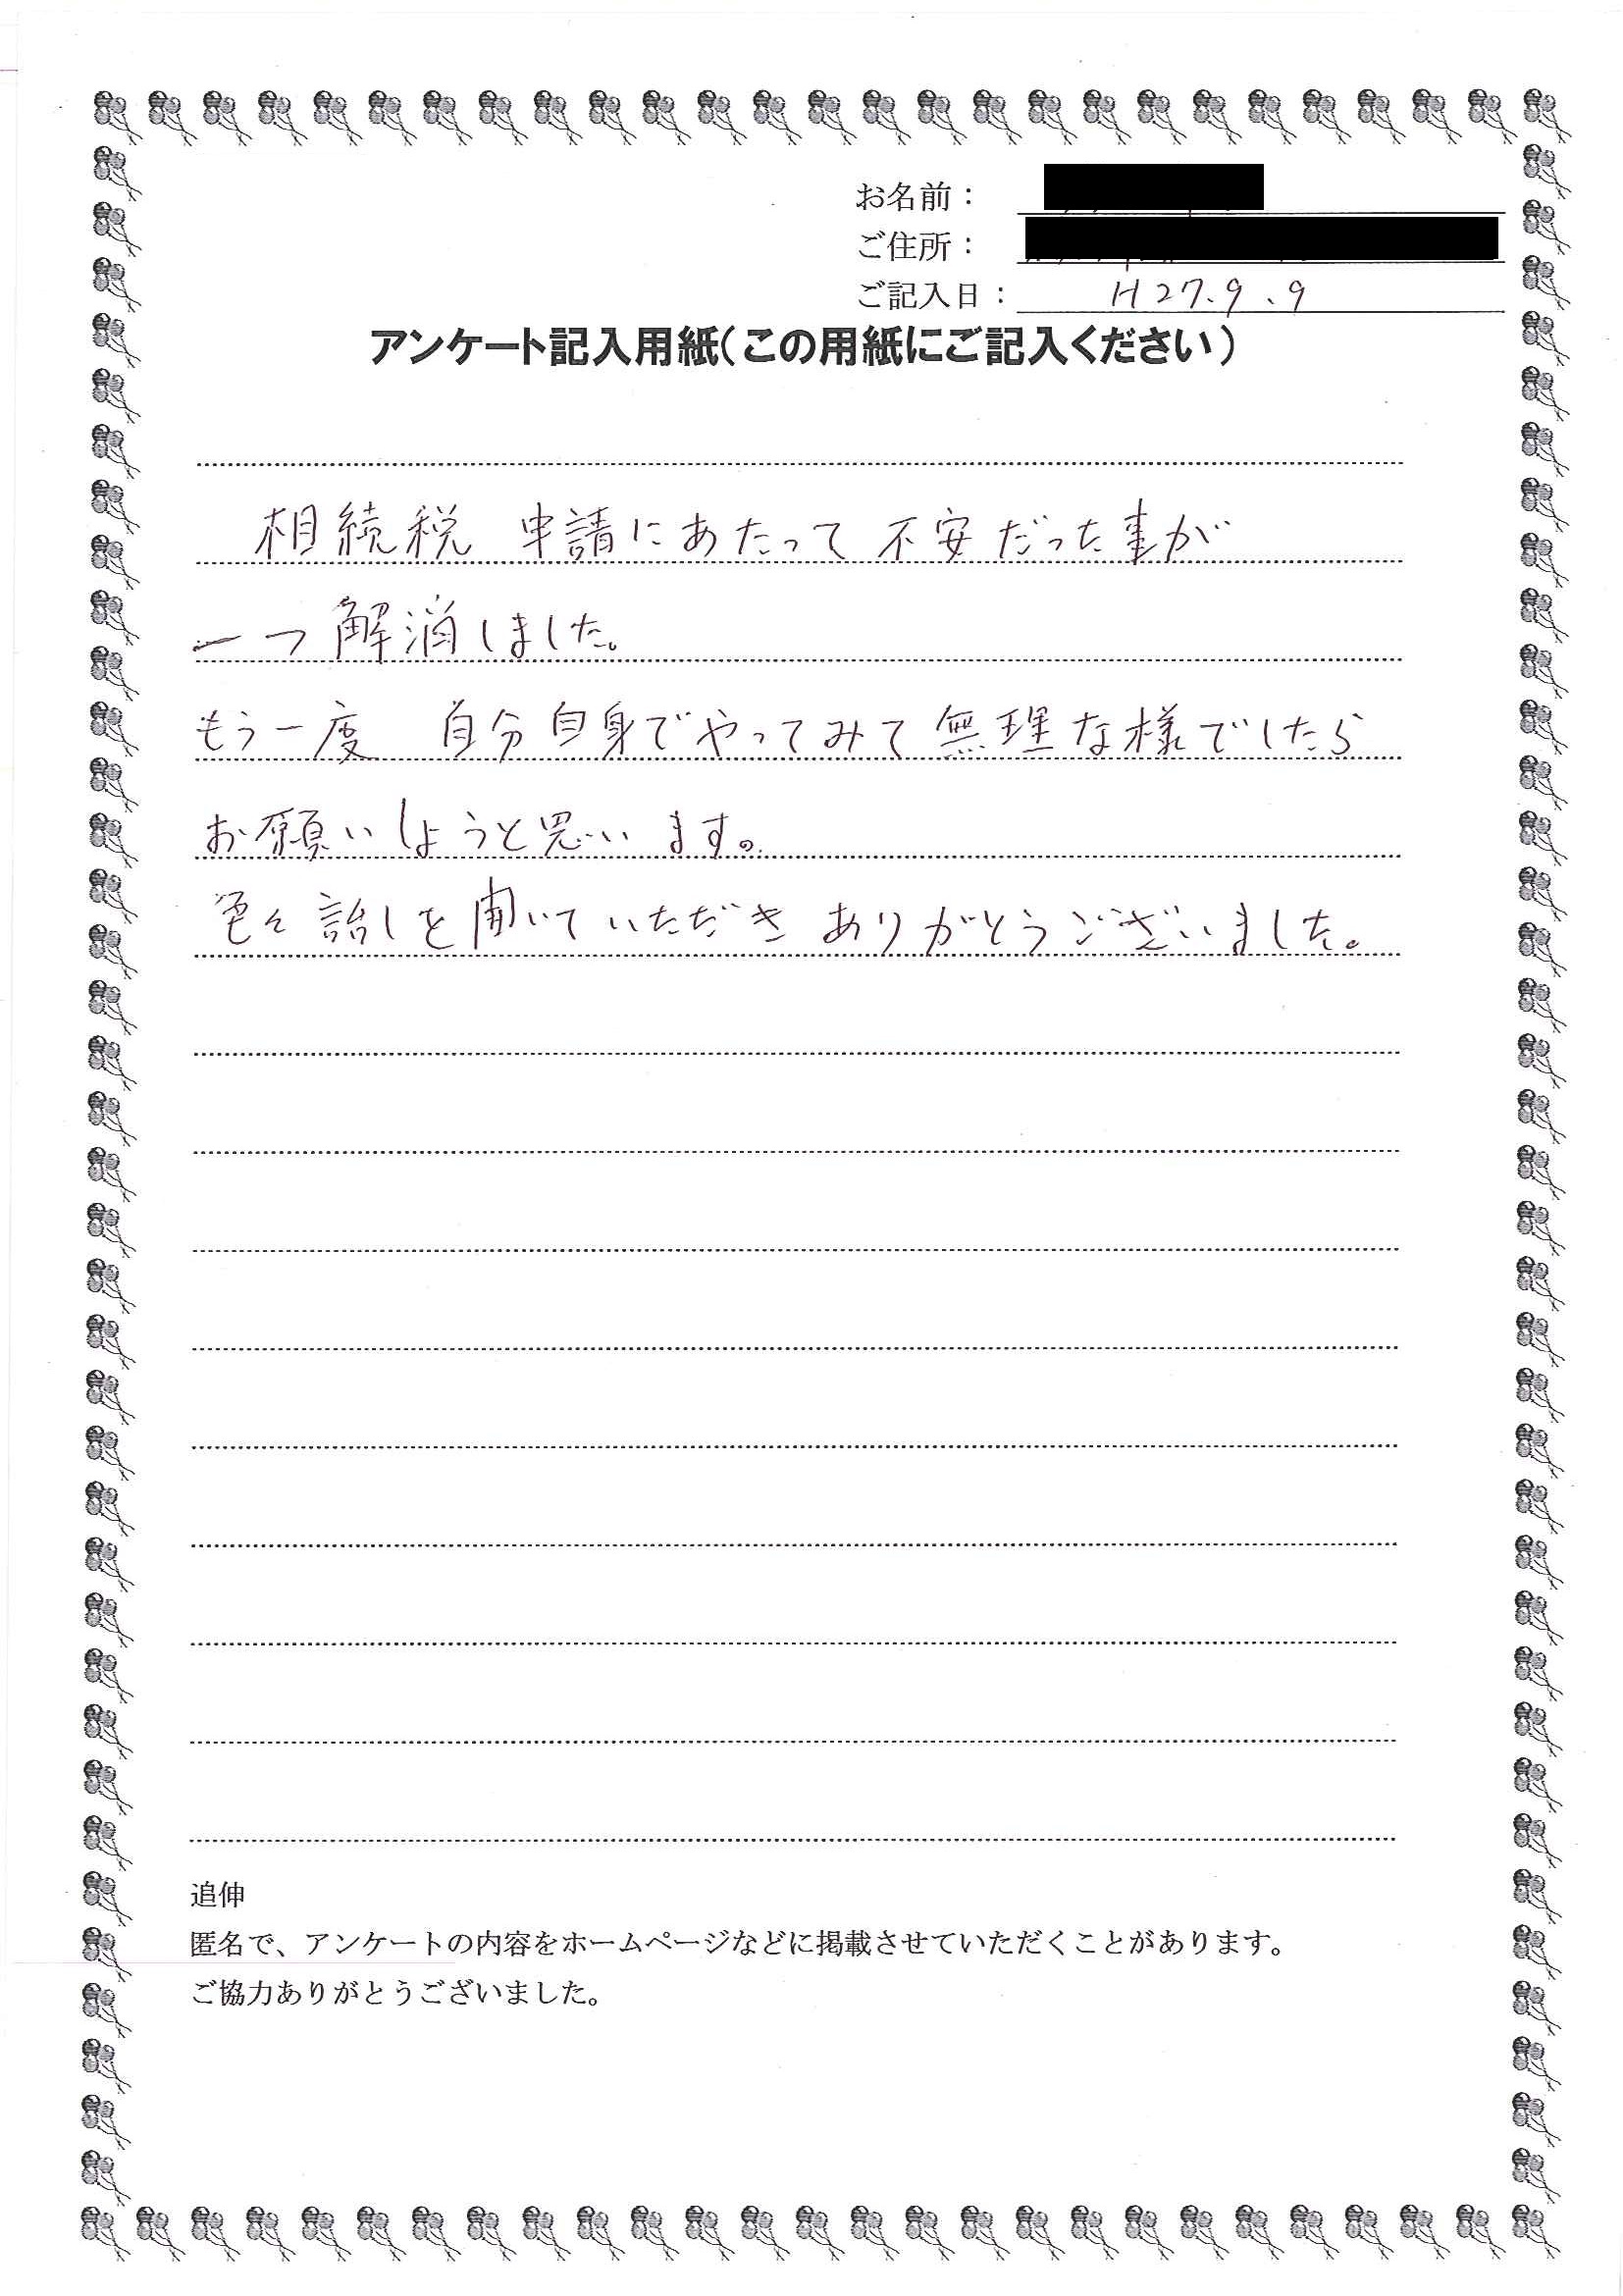 お名前：
ご住所：
ご記入日： H27.9.9
アンケート記入用紙（この用紙にご記入ください）
相続税 申請にあたって 不安だった事が
一つ解消しました。
もう一度 自分自身でやってみて無理な様でしたら
お願いしようと思います。
色々話しを聞いていただきありがとうございました。
追伸
匿名で、アンケートの内容をホームページなどに掲載させていただくことがあります。
ご協力ありがとうございました。